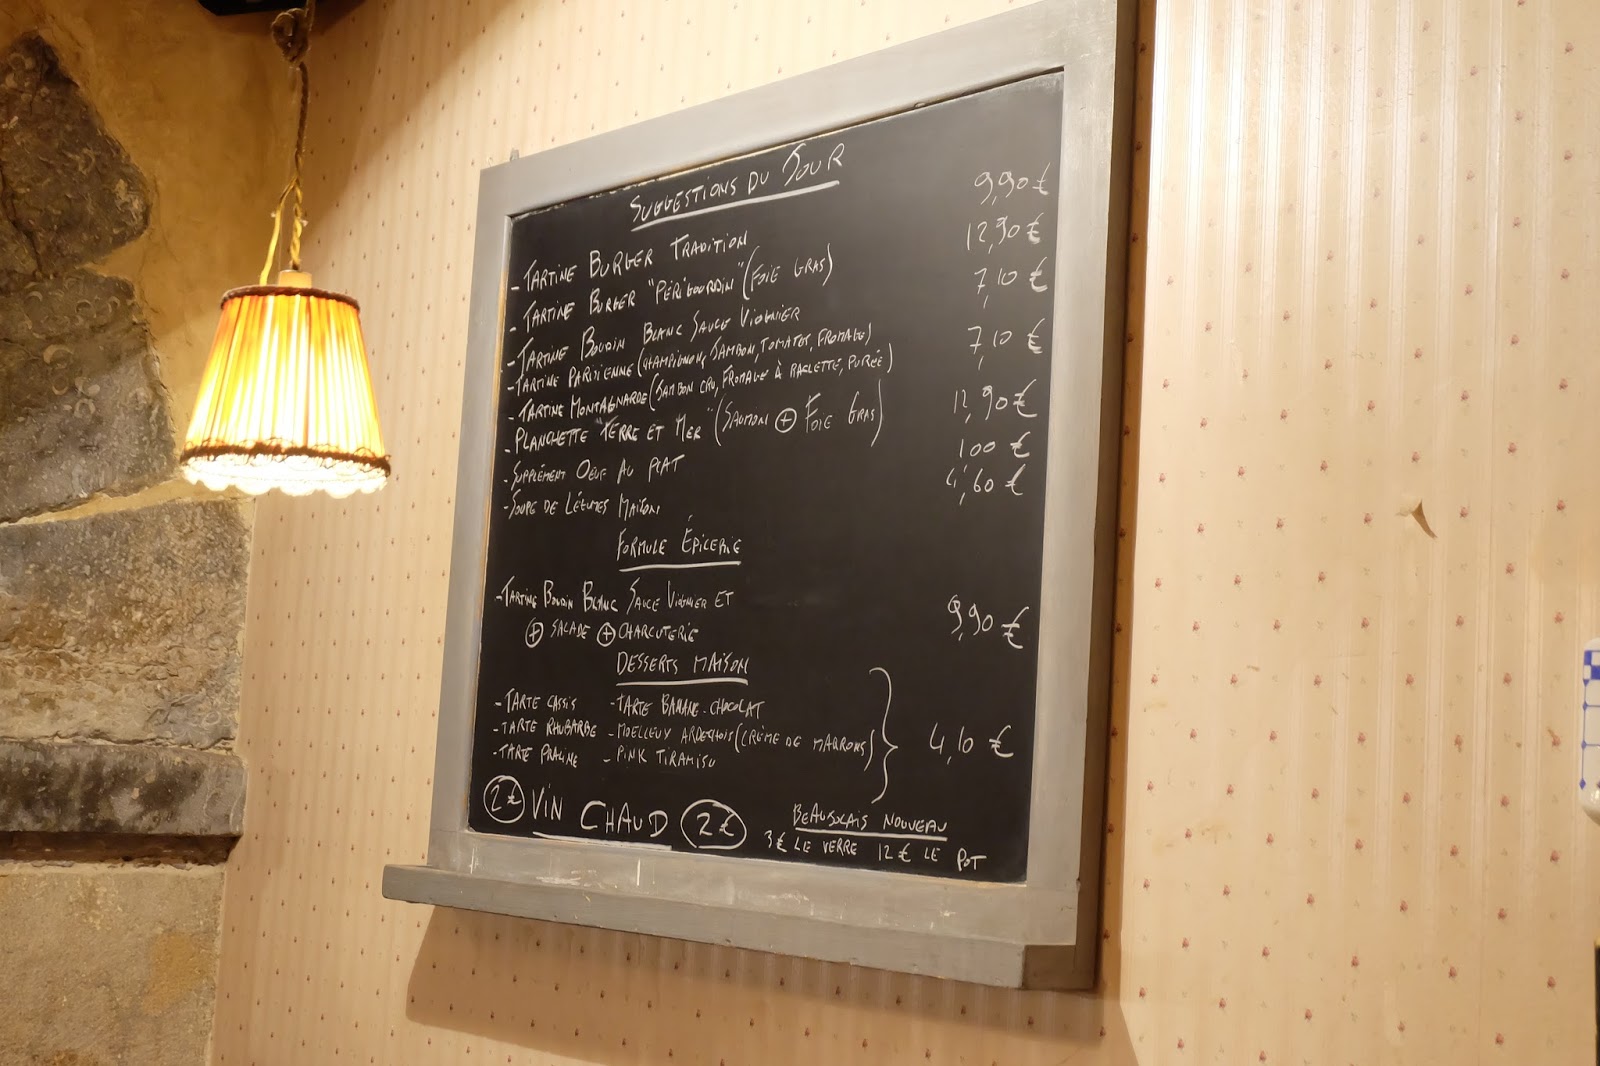 SUGGESTIONS DU JOUR
- TARTINE BURGER TRADITION 9,90 €
- TARTINE BURGER "PÉRIGOURDIN" (FOIE GRAS) 12,90 €
- TARTINE BOUDIN BLANC SAUCE VIOGNIER 7,10 €
- TARTINE PARISIENNE (CHAMPIGNON, JAMBON, TOMATES, FROMAGE) 7,10 €
- TARTINE MONTAGNARDE (JAMBON CRU, FROMAGE À RACLETTE, PURÉE)
- PLANCHETTE TERRE ET MER" (SAUMON + FOIE GRAS) 12,90 €
- SUPPLÉMENT OEUF AU PLAT 1,00
- SOUPE DE LÉGUMES MAISON 4,60 €
FORMULE ÉPICERIE
- TARTINE BOUDIN BLANC SAUCE VIOGNIER ET
+ SALADE + CHARCUTERIE 9,90 €
DESSERTS MAISON
- TARTE CASSIS - TARTE BANANE-CHOCOLAT
- TARTE RHUBARBE - MOELLEUX ARDECHOIS (CRÈME DE MARRONS) 4,10 €
- TARTE PRALINE - PINK TIRAMISU
2€ VIN CHAUD 2€
BEAUJOLAIS NOUVEAU
3€ LE VERRE 12€ LE POT